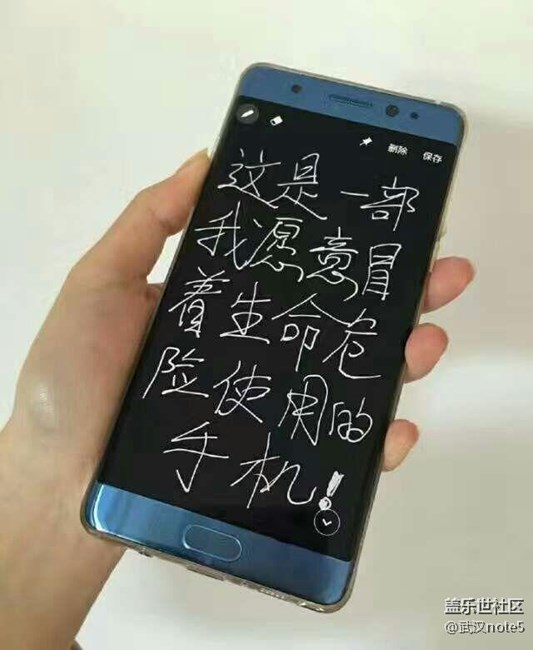 删除 保存
这是一部
我愿意冒
着生命危
险使用的
手机!
盖乐世社区
@武汉note5